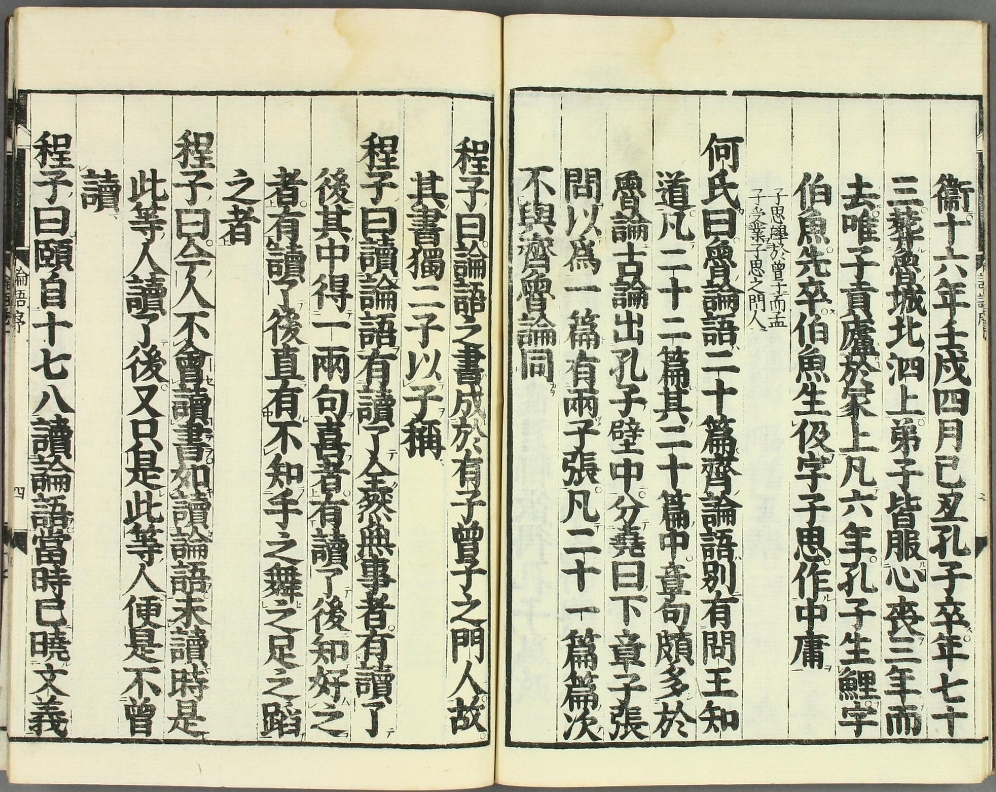 衞十六年壬戌四月己丑孔子卒年七十
三葬魯城北泗上弟子皆服心喪三年而
去唯子貢廬於冢上凡六年孔子生鯉字
伯魚先卒伯魚生伋字子思作中庸
子思學於曾子而孟
子受業子思之門人
何氏曰魯論語二十篇齊論語别有問王知
道凡二十二篇其二十篇中章句頗多於
魯論古論出孔子壁中分堯曰下章子張
問以爲一篇有兩子張凡二十一篇篇次
不與齊魯論同
程子曰論語之書成於有子曾子之門人故
其書獨二子以子稱
程子曰讀論語有讀了全然無事者有讀了
後其中得一兩句喜者有讀了後知好之
者有讀了後直有不知手之舞之足之蹈
之者
程子曰今人不會讀書如讀論語未讀時是
此等人讀了後又只是此等人便是不曾
讀
程子曰頤自十七八讀論語當時已曉文義
論語序
四